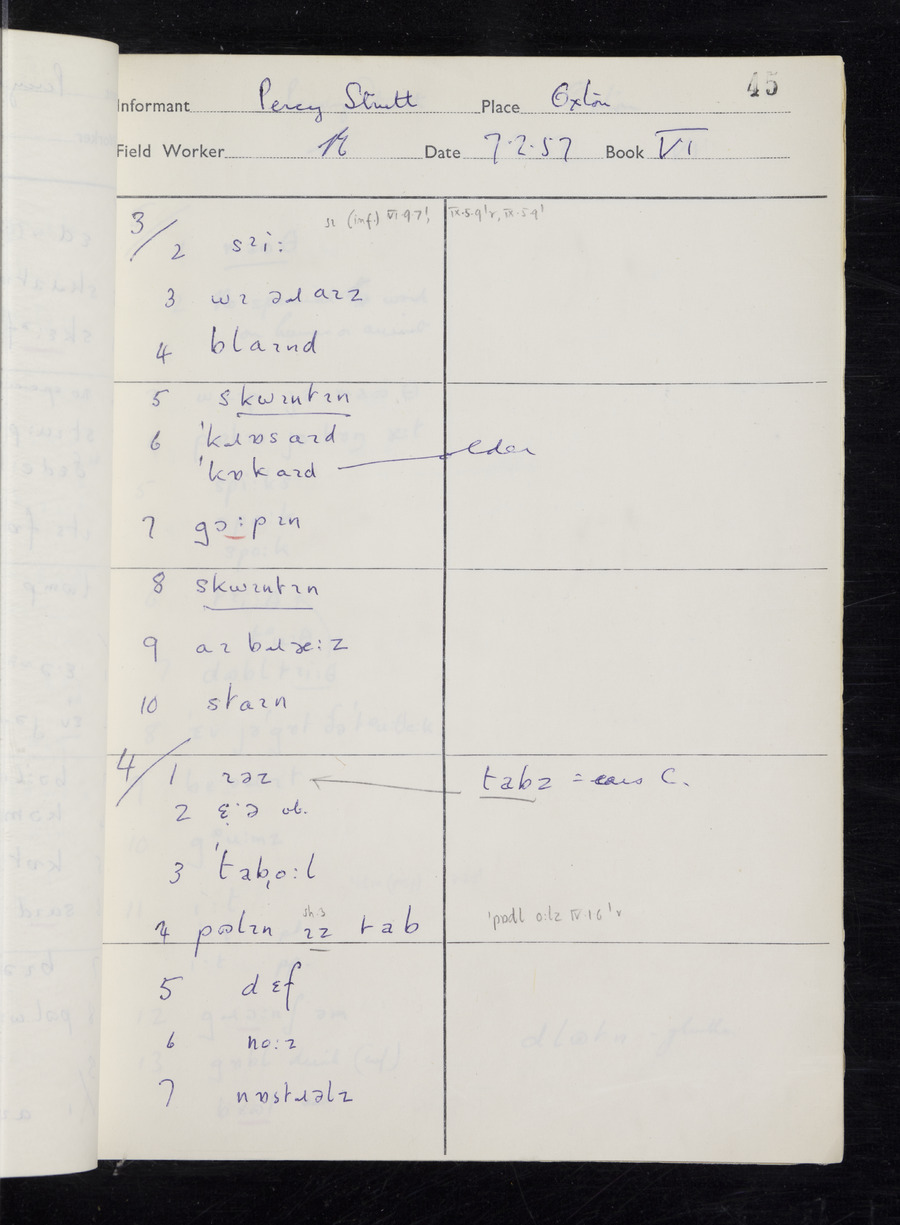 45
Informant Percy Strutt Place Oxton
Field Worker Date 7.2.57 Book VI
3/
sɪ (inf.) VI·9·7¹, IX·5·9¹v, IX·5·9¹
2 sɪi:
3 wɪ əɹ aɪz
4 blaɪnd
5 skwɪntɪn
6 'kɹɒs aɪd
'kɒk aɪd older
7 gɔ:pɪn
8 skwɪntɪn
9 aɪ bɹæ:z
10 staɪn
4/
1 ɪəz tabz = C.
2 ɛ·ə ob.
3 'tab,o:l
4 ɪz tab
'pɒdl o:lz IV·1·6¹v
5 dɛf
6 no:z
7 nɒstɹəlz